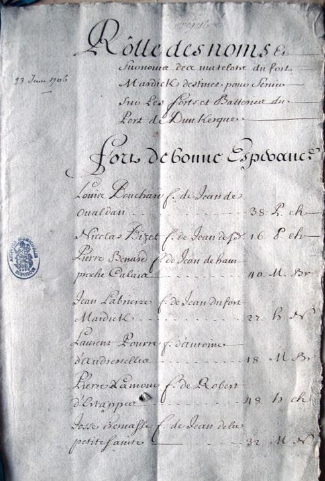 Rôlle des noms &
Surnoms des matelots du fort
23 Juin 1706
Mardick destinez pour Servir
Sur Les forts et Batteries du
Port de Dunkerque
fort de bonne Esperance
Louis Bouchart f. de Jean de
Oualdan 38 P. ch
Nicolas Bizet f. de Jean de 16 P ch
Pierre Benard f. de Jean de ham
proche Calais 40 M. Br
Jean f. de Jean du fort
Mardick 27
Laurent Pourre f. d'antoine
d'Andresselles 18 M Br
Pierre f. de Robert
d'Estapper 48 ch
Josse f. de Jean de la
petite Sainte 32 M N